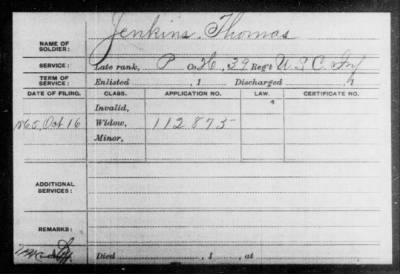 Jenkins, Thomas
NAME OF SOLDIER:
SERVICE: Late rank, P Co. H, 39 Reg't U.S.C. Inf
TERM OF SERVICE: Enlisted , 1 Discharged , 1
DATE OF FILING. CLASS. APPLICATION NO. LAW. CERTIFICATE NO.
Invalid,
1865, Oct 16 Widow, 112875
Minor,
ADDITIONAL SERVICES:
REMARKS:
Died , 1 , at